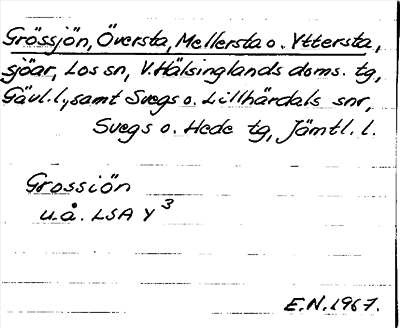 Grössjön, Översta, Mellersta o. Yttersta,
sjöar, Los sn, V. Hälsinglands doms. tg,
Gävl. l., samt Svegs o. Lillhärdals snr,
Svegs o. Hede tg, Jämtl. l.
Grossiön
u.å. LSA Y 3
E.N. 1967.